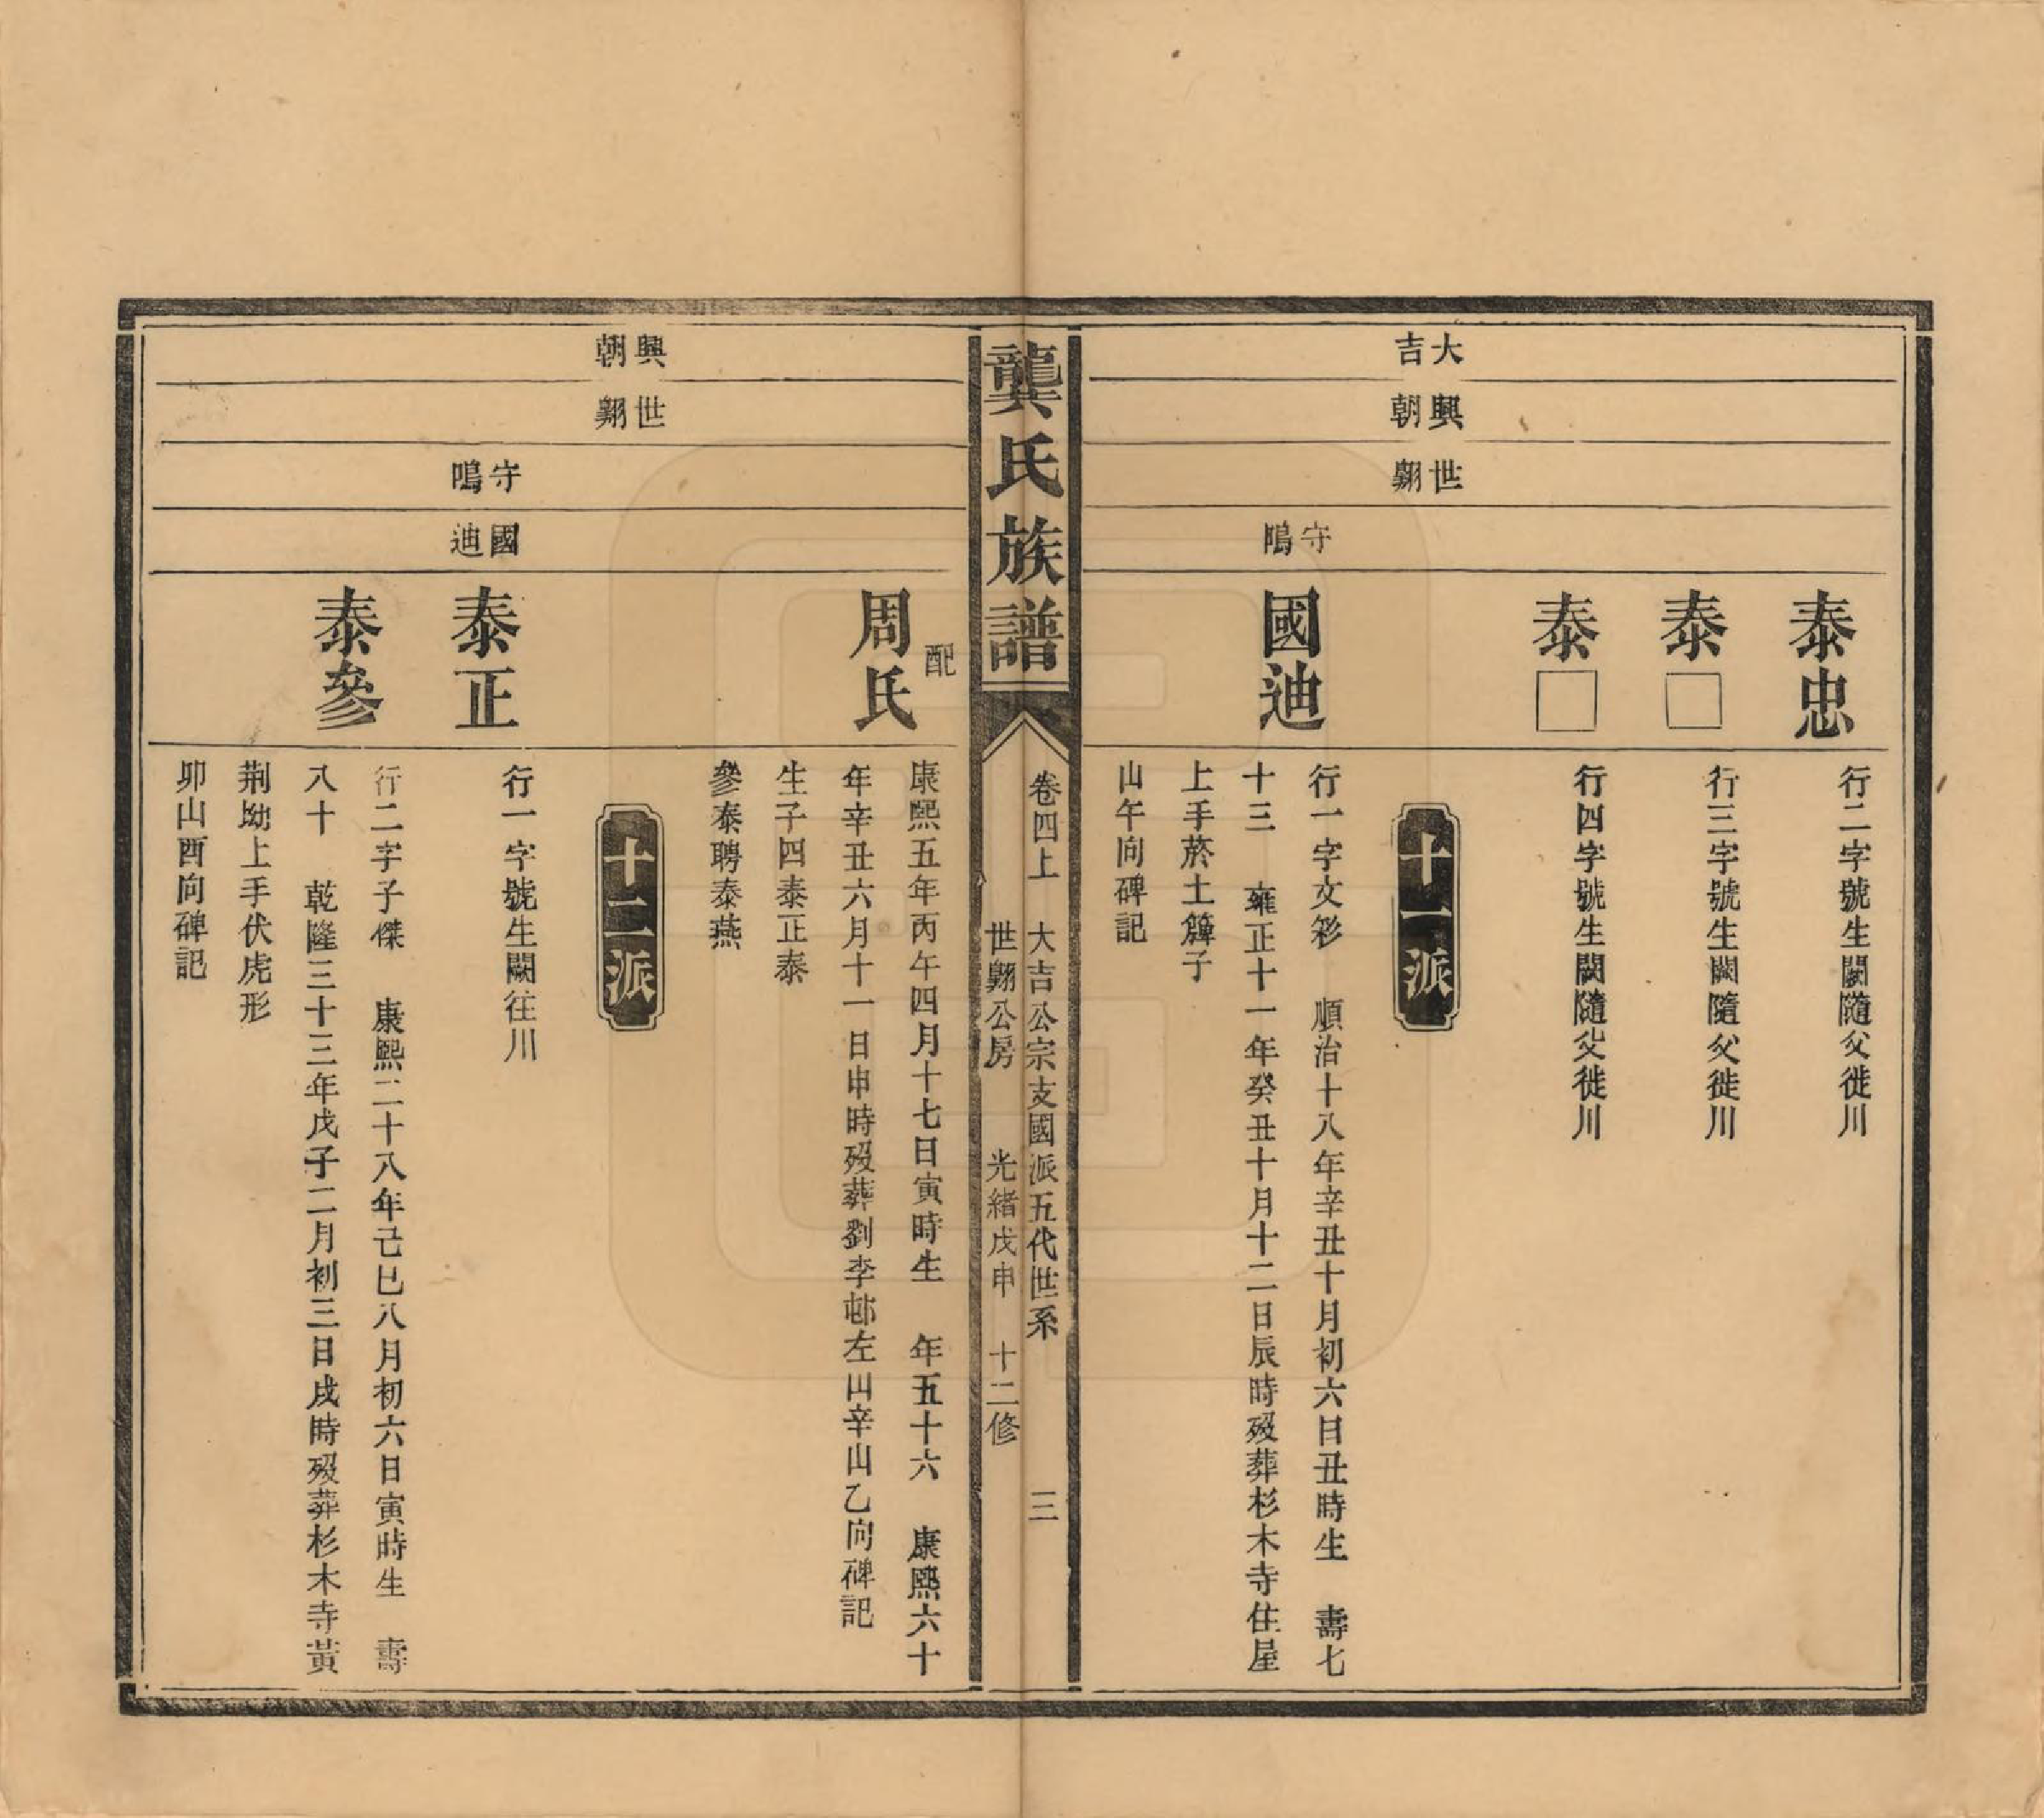 大吉
興朝
世翺
守鳴
泰忠
行二字號生闕隨父徙川
泰□
行三字號生闕隨父徙川
泰□
行四字號生闕隨父徙川
十一派
國迪
行一字文彩 順治十八年辛丑十月初六日丑時生 壽七
十三 雍正十一年癸丑十月十二日辰時歿葬杉木寺住屋
上手菸土篺子
山午向碑記
龔氏族譜
卷四上 大吉公宗支國派五代世系 三
世翺公房 光緒戊申 十二修
興朝
世翺
守鳴
國迪
配
周氏
康熙五年丙午四月十七日寅時生 年五十六 康熙六十
年辛丑六月十一日申時歿葬劉李邨左山辛山乙向碑記
生子四泰正泰
參泰聘泰燕
十二派
泰正
行一字號生闕往川
泰參
行二字子傑 康熙二十八年己巳八月初六日寅時生 壽
八十 乾隆三十三年戊子二月初三日戌時歿葬杉木寺黃
荆坳上手伏虎形
卯山酉向碑記